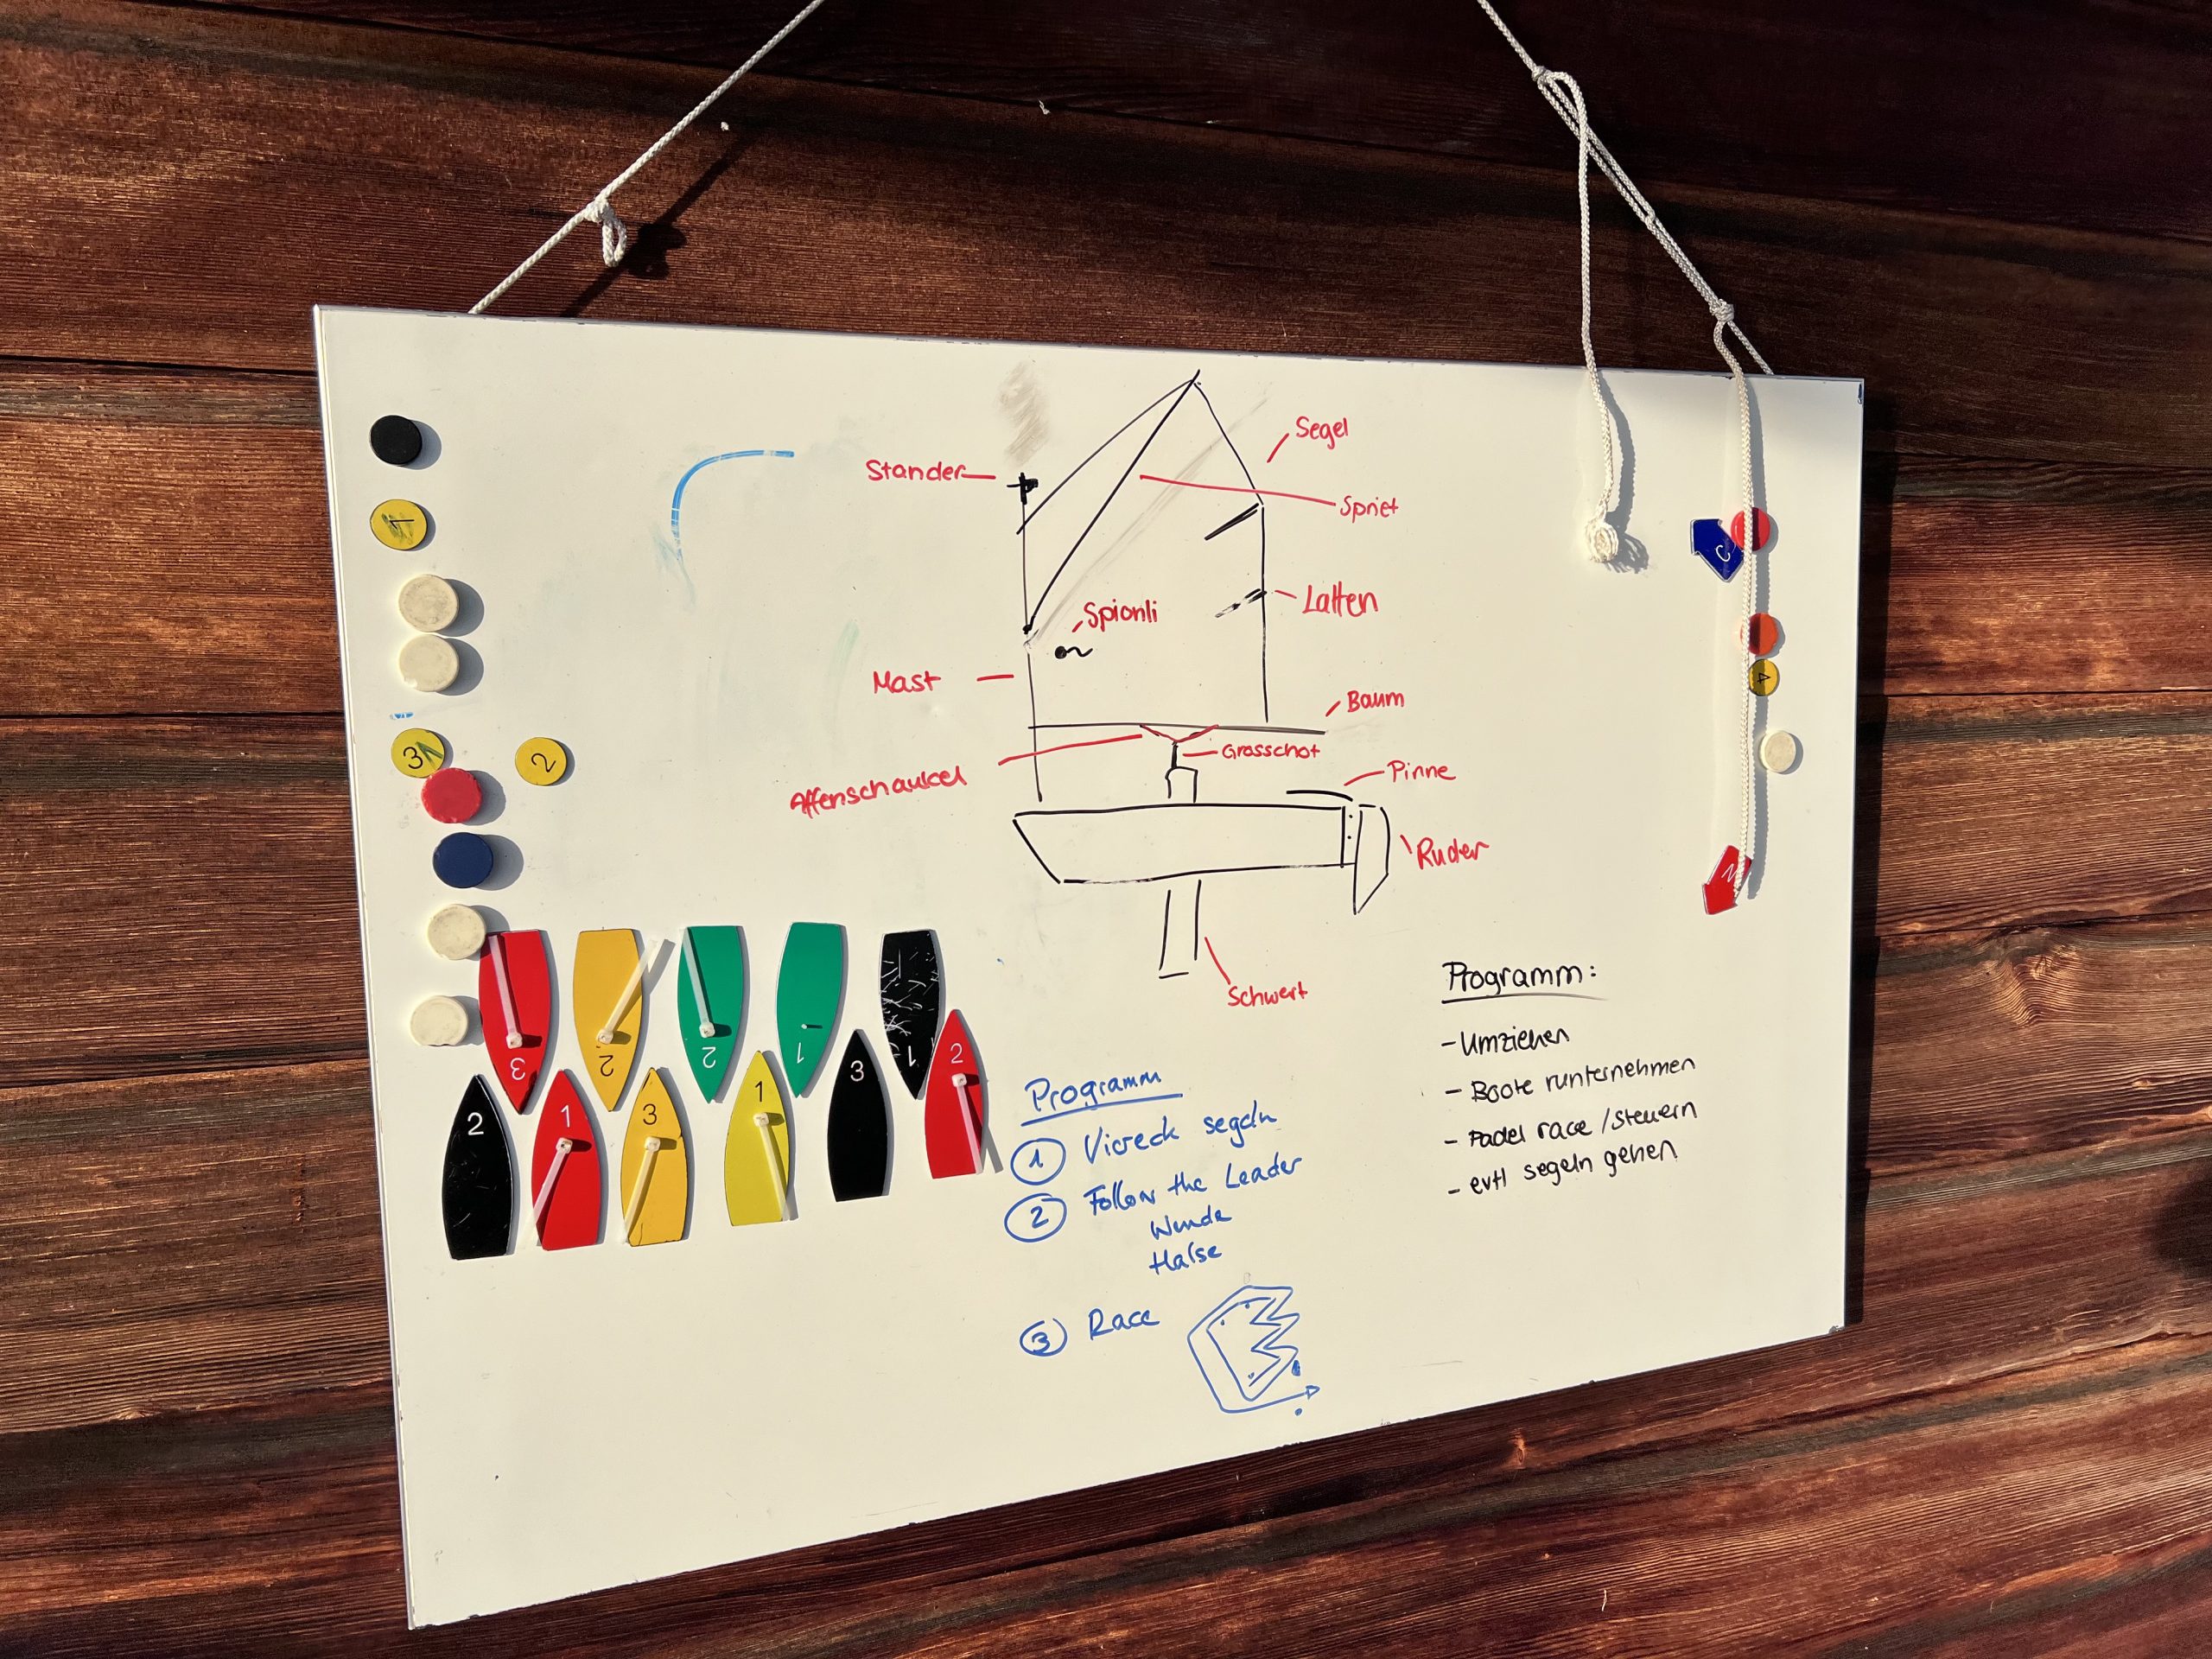 Segel
Stander
Spriet
Spionli
Latten
Mast
Baum
Grosschot
Affenschaukel
Pinne
Ruder
Schwert
1
3
2
4
C
N
3
2
2
1
1
2
1
3
1
3
2
Programm
1 Viereck segeln
2 Follow the Leader
Wende
Halse
3 Race
Programm:
- Umziehen
- Boote runternehmen
- Padel race / steuern
- evtl segeln gehen